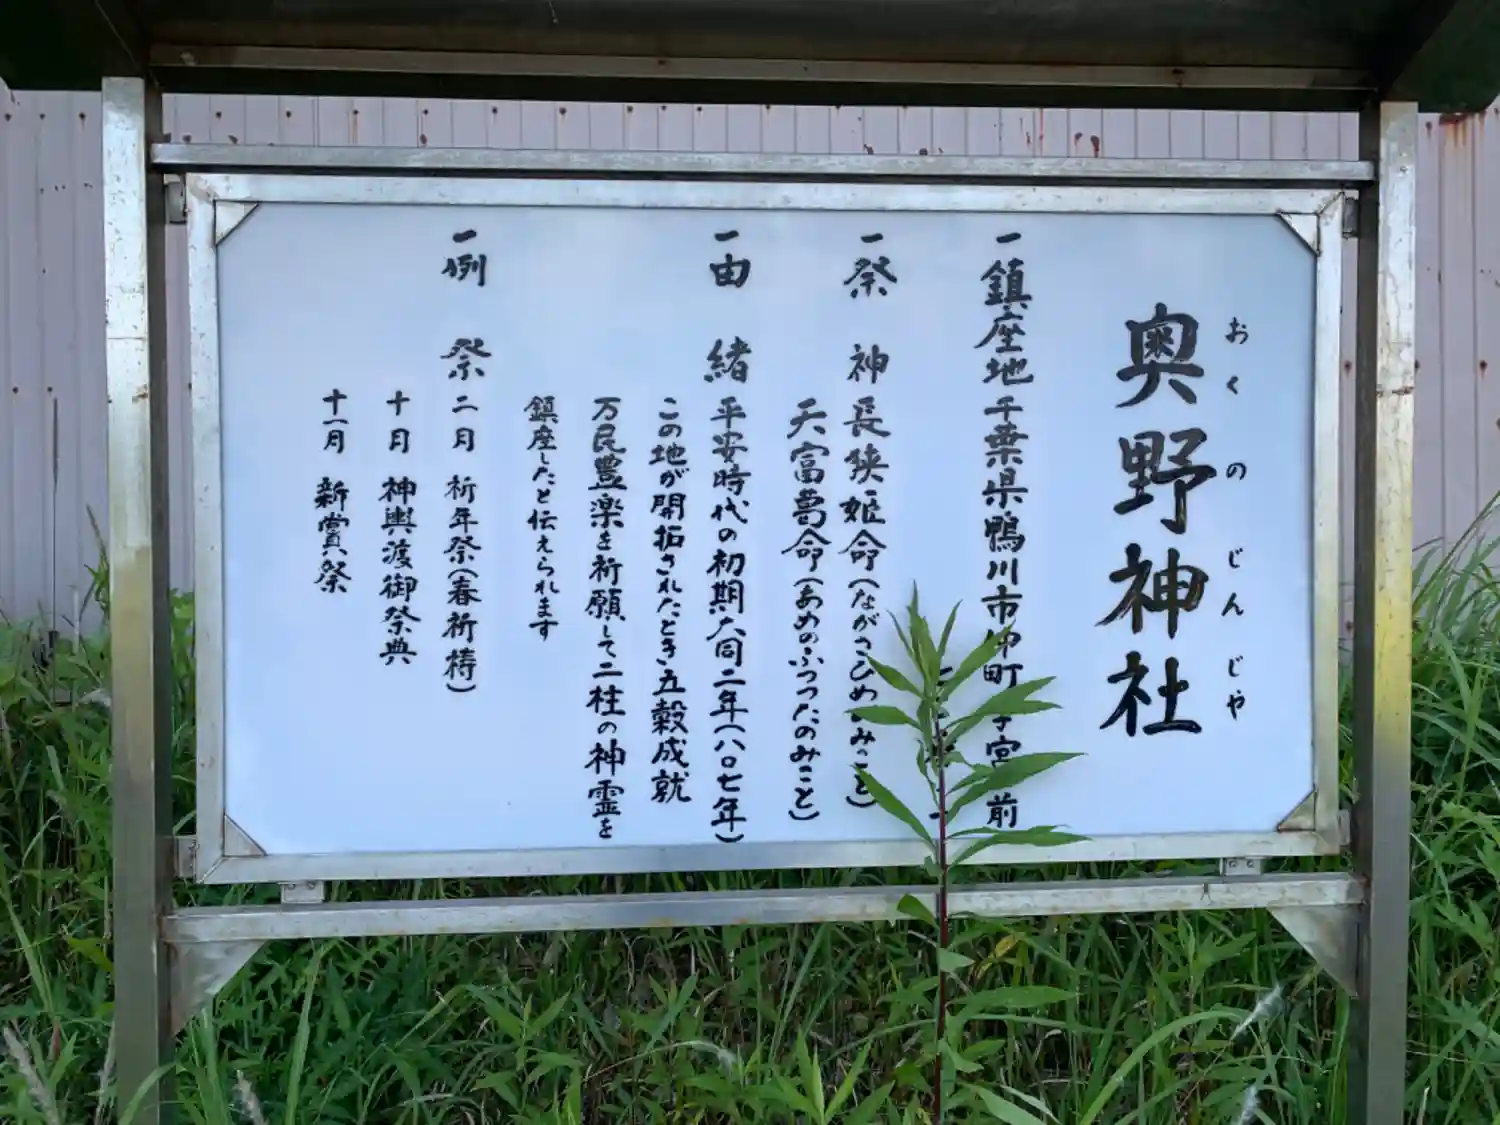 おくのじんじゃ
奥野神社
一鎮座地 千葉県鴨川市仲町 宮 前
一祭 神 長狭姫命(ながさひめ みこと)
天富葛命(あめのふつったのみこと)
一由 緒 平安時代の初期大同二年(八〇七年)
この地が開拓されたとき五穀成就
万民豊楽を祈願して二柱の神霊を
鎮座したと伝えられます
一例 祭 二月 祈年祭(春祈梼)
十月 神輿渡御祭典
十一月 新賞祭